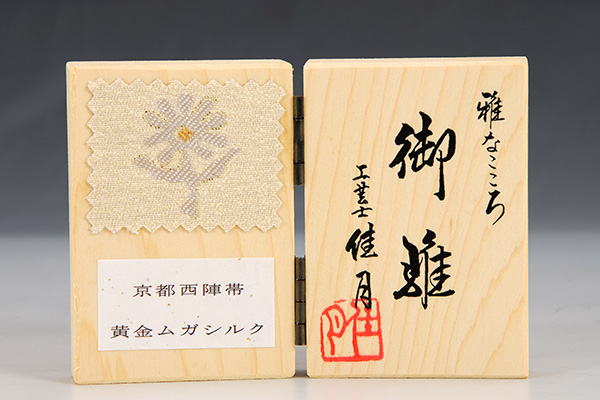 京都西陣帯
黄金ムガシルク
雅なこころ
御雛
工芸士 佳月
佳月